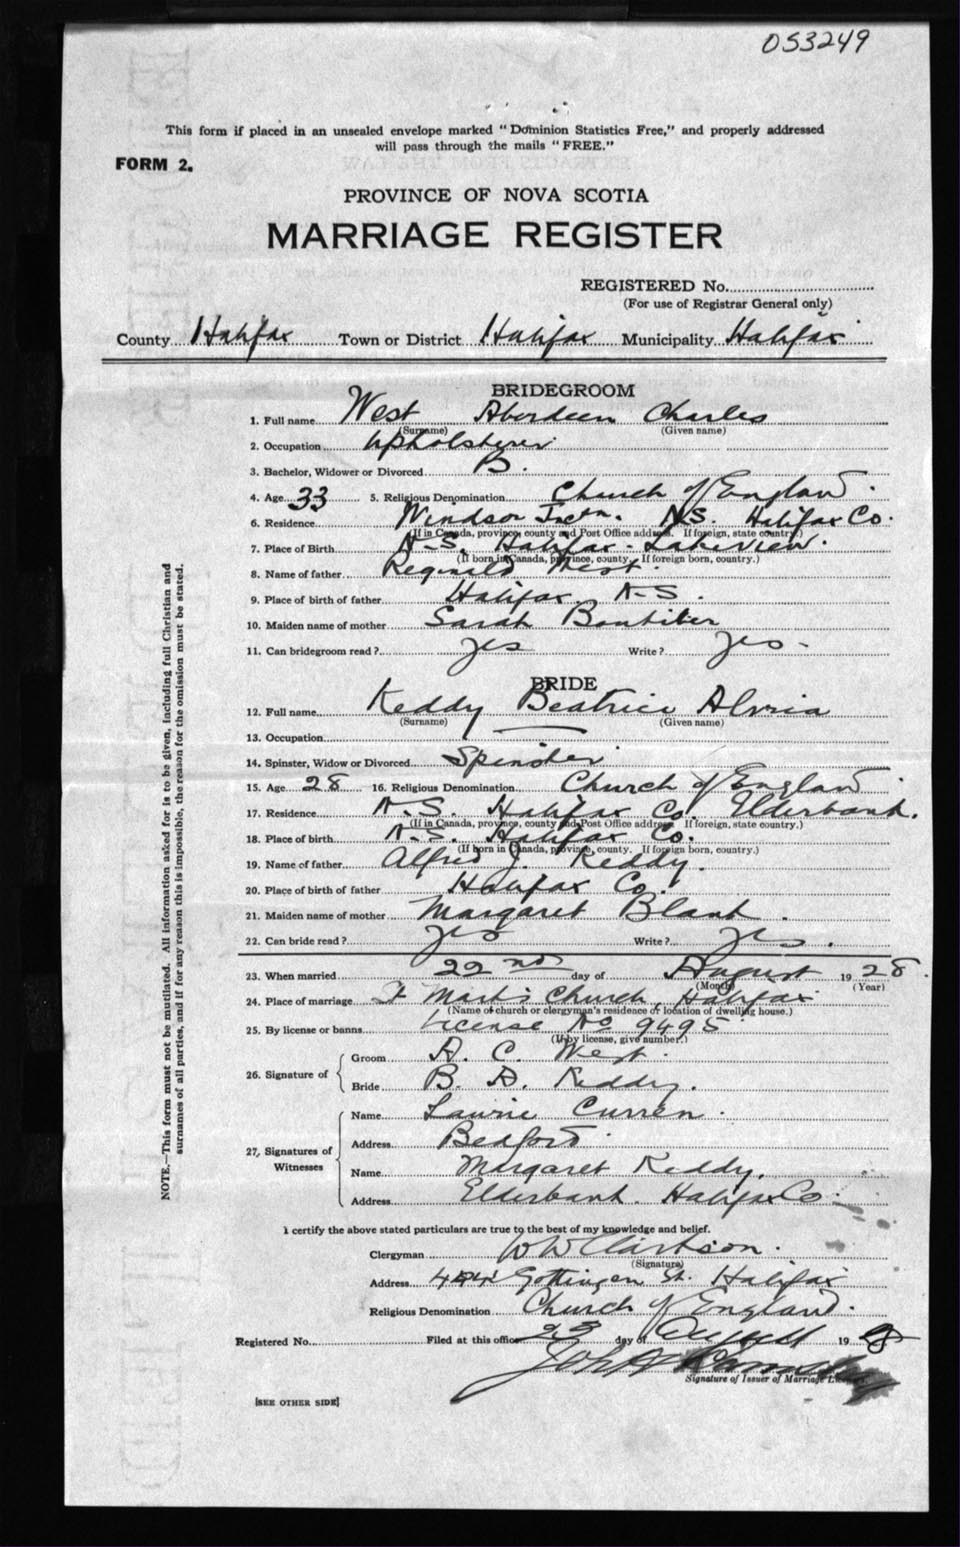 053249
This form if placed in an unsealed envelope marked "Dominion Statistics Free," and properly addressed
will pass through the mails "FREE."
FORM 2.
PROVINCE OF NOVA SCOTIA
MARRIAGE REGISTER
REGISTERED No.
(For use of Registrar General only)
County Halifax Town or District Halifax Municipality Halifax
BRIDEGROOM
1. Full name West Aberdeen Charles
(Surname) (Given name)
2. Occupation Upholsterer
3. Bachelor, Widower or Divorced B.
4. Age 33 5. Religious Denomination Church of England.
6. Residence Windsor Jnctn. N.S. Halifax Co.
(If in Canada, province, county and Post Office address. If foreign, state country.)
7. Place of Birth N.S. Halifax - Lakeview.
(If born in Canada, province, county. If foreign born, country.)
8. Name of father Reginald West.
9. Place of birth of father Halifax N.S.
10. Maiden name of mother Sarah Boutilier
11. Can bridegroom read? yes Write? yes -
BRIDE
12. Full name Keddy Beatrice
(Surname) (Given name)
13. Occupation
14. Spinster, Widow or Divorced Spinster
15. Age 28 16. Religious Denomination Church of England.
17. Residence N.S. Halifax Co. Elderbank.
(If in Canada, province, county and Post Office address. If foreign, state country.)
18. Place of birth N.S. Halifax Co.
(If born in Canada, province, county. If foreign born, country.)
19. Name of father Alfred J. Keddy.
20. Place of birth of father Halifax Co.
21. Maiden name of mother Margaret Blank.
22. Can bride read? yes Write? yes.
23. When married 22nd day of August 1928.
(Month) (Year)
24. Place of marriage St Mark's Church, Halifax
(Name of church or clergyman's residence or location of dwelling house.)
25. By license or banns License No 9495
(If by license, give number.)
26. Signature of
Groom A. C. West.
Bride B. A. Keddy.
27. Signatures of Witnesses
Name Laurie Curren.
Address Bedford.
Name Margaret Keddy.
Address Elderbank. Halifax Co.
I certify the above stated particulars are true to the best of my knowledge and belief.
Clergyman W W Clarkson.
(Signature)
Address Gottingen St. Halifax
Religious Denomination Church of England.
Registered No. Filed at this office 23 day of August 1928
Signature of Issuer of Marriage
[SEE OTHER SIDE]
NOTE.—This form must not be mutilated. All information asked for is to be given, including full Christian and
surnames of all parties, and if for any reason this is impossible, the reason for the omission must be stated.